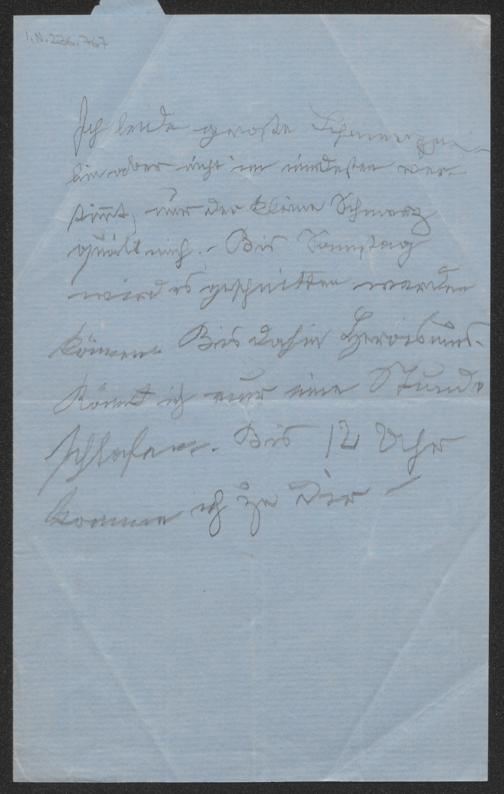 I.N. 226.767
Ich leide große Schmerzen
bin aber nicht im mindesten ver-
stimt, nur der kleine Schmerz
quält mich. – Bis Samstag
wird es geschnitten werden
können. Bis dahin Heroismus.
Könnt ich nur eine Stunde
schlafen. Bis 12 Uhr
komme ich zu Dir –